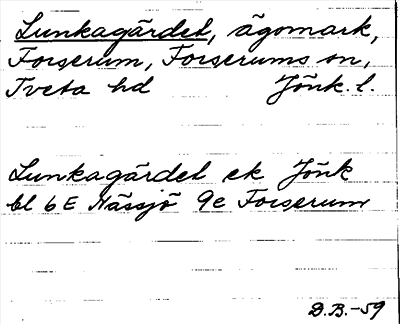 Lunkagärdet, ägomark,
Forserum, Forserums sn,
Tveta hd Jönk. l.
Lunkagärdet ek Jönk
bl 6E Nässjö 9e Forserum
D.B.-59